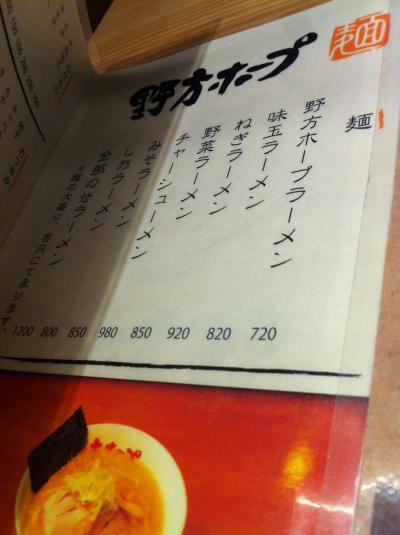 野方ホープ
麺
麺
野方ホープラーメン 720
味玉ラーメン 820
ねぎラーメン 920
野菜ラーメン 850
チャーシューメン 980
みそラーメン 850
しおラーメン 800
全部のせラーメン 1200
※麺の大盛り、百円にて承ります。